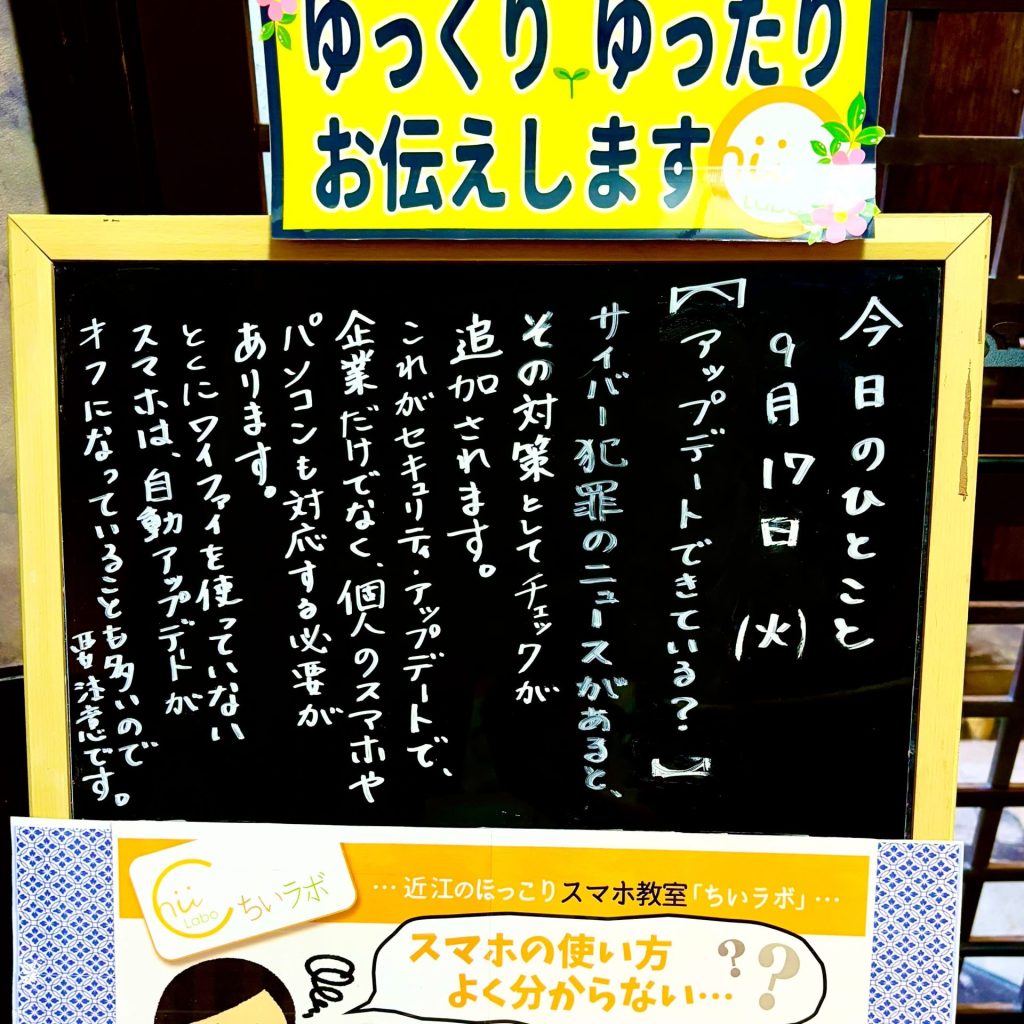 ゆっくり ゆったり
お伝えします
hii
Labo
今日のひとこと
9月17日(火)
【アップデートできている?】
サイバー犯罪のニュースがあると、
その対策としてチェックが
追加されます。
これがセキュリティ・アップデートで、
企業だけでなく、個人のスマホや
パソコンも対応する必要が
あります。
とくにワイファイを使っていない
スマホは、自動アップデートが
オフになっていることも多いので
要注意です。
Chii
Labo
ちいラボ
…近江のほっこりスマホ教室「ちいラボ」…
スマホの使い方
よく分からない…
??